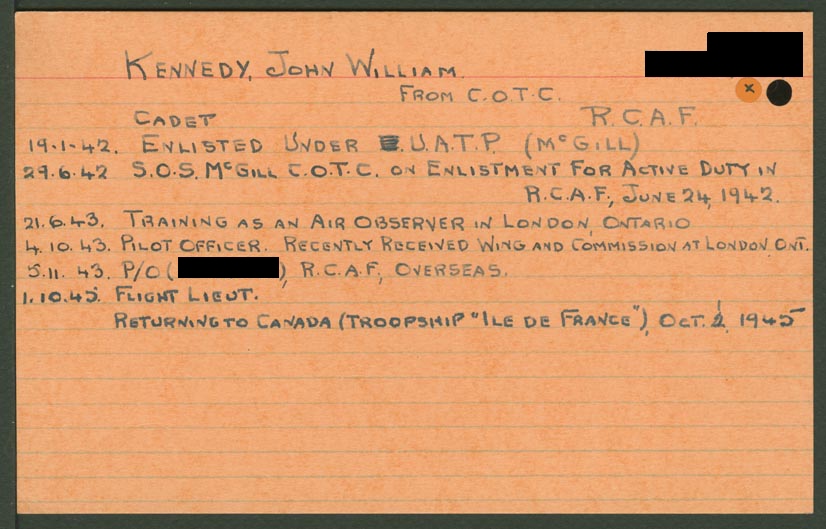 KENNEDY, JOHN WILLIAM.
FROM C.O.T.C.
CADET R.C.A.F.
19.1.42. ENLISTED UNDER U.A.T.P. (McGILL)
29.6.42 S.O.S. McGILL C.O.T.C. ON ENLISTMENT FOR ACTIVE DUTY IN
R.C.A.F., JUNE 24, 1942.
21.6.43. TRAINING AS AN AIR OBSERVER IN LONDON, ONTARIO
4.10.43. PILOT OFFICER. RECENTLY RECEIVED WING AND COMMISSION AT LONDON ONT.
5.11.43. P/O ( ), R.C.A.F., OVERSEAS.
1.10.45. FLIGHT LIEUT.
RETURNING TO CANADA (TROOPSHIP "ILE DE FRANCE"), OCT. 1945